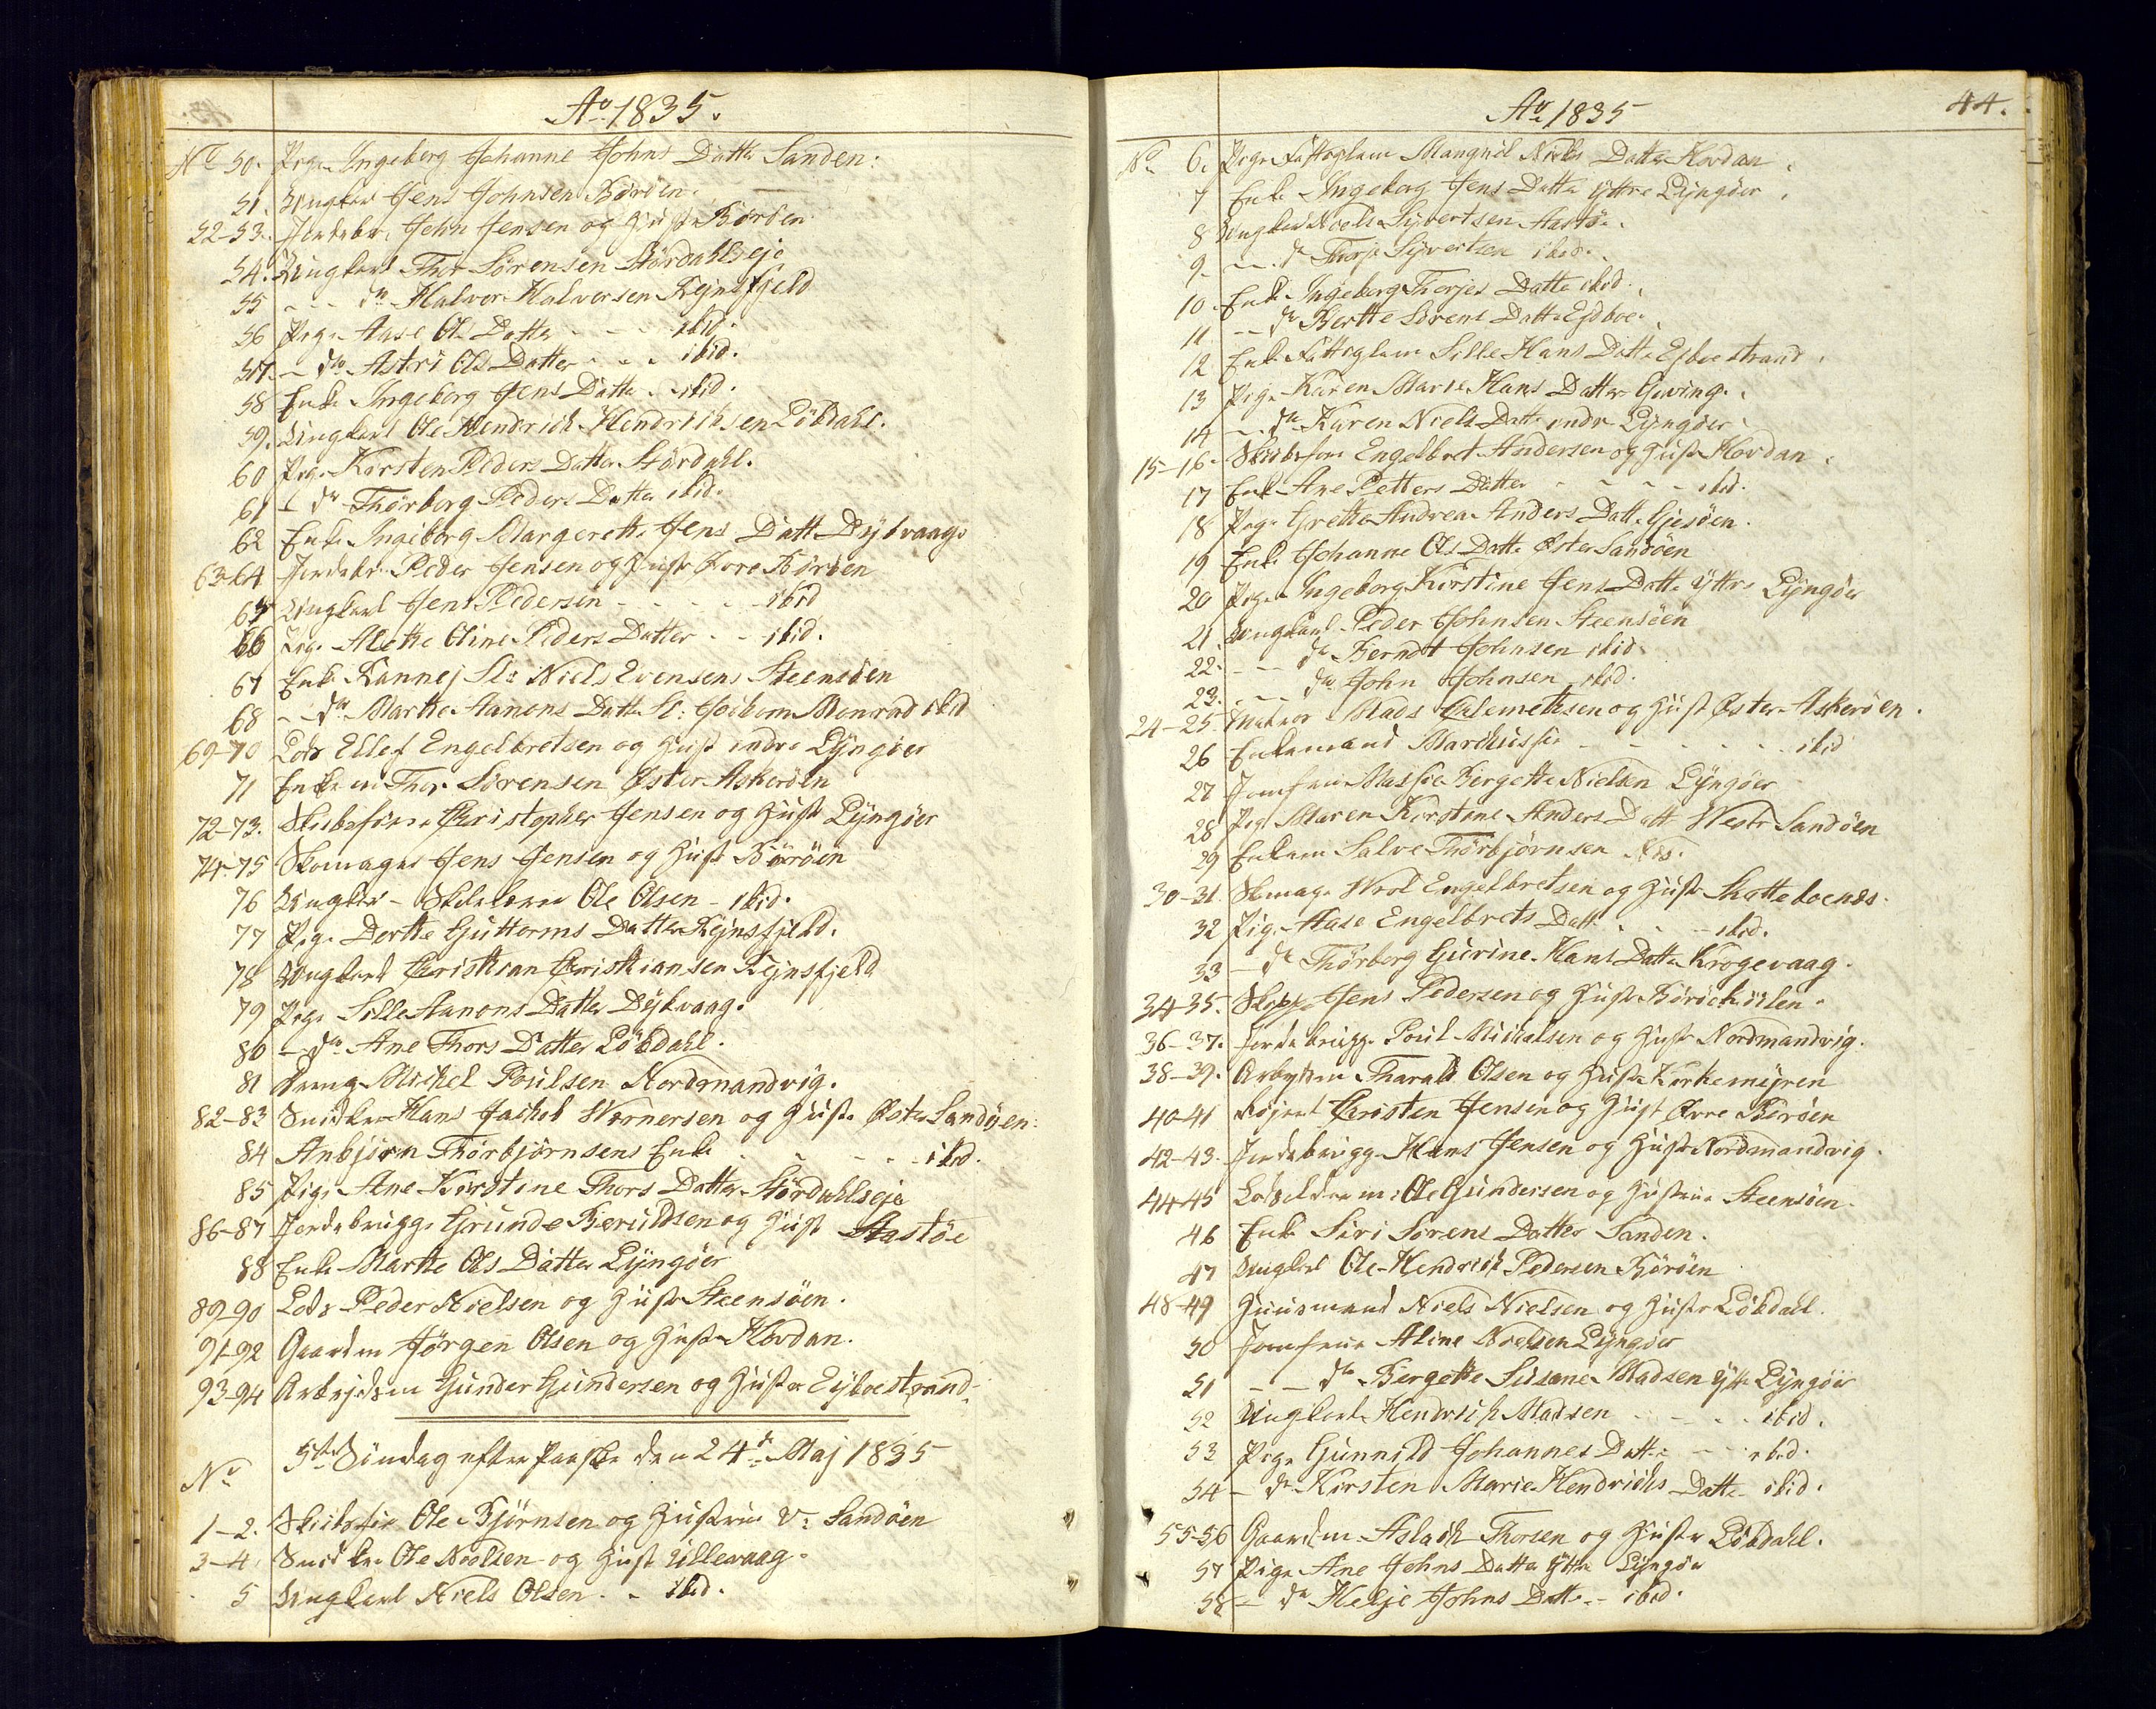 Ao 1835.
No 50. Pige Ingeborg Johanne Johns Datter Sanden.
51. Ungkarl Jens Johnsen Böröen.
52-53. Jordebr. John Jensen og Hustr. Böröen
54. Ungkarl Thor Sörensen Stördahlseje
55 - - do Halvor Halvorsen Rejnsfjeld
56 Pige Aase Ols Datter - - ibid.
57. - do Astri Ols Datter - - ibid.
58 Enke Ingeborg Jens Datter - ibid.
59. Ungkarl Ole Hendrich Hendrichsen Löbdahl.
60 Pige Kirsten Peders Datter Stördahl.
61 - do Thorborg Peders Datter ibid.
62 Enke Ingeborg Margerethe Jens Datt Dybvaag.
63-64 Jordebr. Peder Jensen og Hustr Övre Böröen
65 Ungkarl Jens Pedersen - - - - ibid
66 Pige Alethe Oline Peders Datter - - ibid.
67 Enke Rannej Sl: Niels Evensens Steensöen
68 - do Marthe Aanons Datter Sl: Monrad ibid
69-70 Lods Ellef Engelbretsen og Hust indre Lyngöer
71 Enkem Thor Sörensen Öster Askeröen
72-73. Skibsförer Christopher Jensen og Hustr Lyngöer
74-75 Skomager Jens Jensen og Hust Böröen
76 Ungkar - Ole Olsen - ibid.
77 Pige Dorthe Gutterms Datter Rejnsfjeld.
78 Ungkarl Christian Christiansen Rejnsfjeld
79 Pige Sille Aanons Datter Dybvaag.
80 - do Ane Thors Datter Löbdahl.
81 Dreng Michel Poulsen Nordmandvig.
82-83 Snidker Hans Jachob Wernersen og Hustr. Öster Sandöen.
84 Anbjörn Thorbjörnsens Enke - - - ibid.
85 Pige Ane Kirstine Thors Datter Stördahlseje
86-87 Jordebrugge Grunde Beruldsen og Hust Aastöe
88 Enke Marthe Ols Datter Lyngöer
89-90 Lods Peder Nielsen og Hustr Steensöen.
91-92 Gaardm Jörgen Olsen og Hustr Hovdan.
93-94 Arbejdsm Gunder Gundersen og Hustr Eijboestrand.
5te Söndag efter Paaske den 24de Maj 1835
No
1-2. Skibsför Ole Bjørnsen og Hustrue V: Sandöen
3-4. Snidker Ole Nielsen og Hust Lillevaag.
5 Ungkarl Niels Olsen - - ibid.
Ao 1835
44.
No 6. Pige Fattiglem Mangnil Niels Datter Hovdan
7 Enke Ingeborg Jens Datter yttre Lyngöer
8 Ungkarl Niels Syvertsen Aastöe.
9 - - do Thorje Syvertsen ibid.
10 Enke Ingeborg Thorjes Datter ibid.
11 - - do Berthe Sörens Datter Ejdboe.
12 Enke Fattiglem Sille Hans Datter Ejboestrand.
13 Pige Karen Marie Hans Datter Gjeving.
14 - do Karen Niels Datter indre Lyngöer
15-16. Skibsfører Engelbret Andersen og Hustr Hovdan.
17 Enke Ane Petters Datter - - - - ibid.
18 Pige Grethe Andrea Anders Datt. Gjesöen.
19 Enke Johanne Ols Datte Öster Sandöen
20 Pige Ingeborg Kirstine Jens Datte yttre Lyngöer
21. Ungkarl Peder Johnsen Steensöen
22. - - do Berndt Johnsen ibid.
23. - - do John Johnsen ibid.
24-25. Mads Calemethsen og Hust Öster Askeröen.
26 Enkemand - - - - - ibid
27 Jomfrue Massie Bergette Nielsen Lyngöer
28 Pige Maren Kirstine Anders Datt Westr Sandöen
29 Enkem Salve Thorbjørnsen
30-31. Skomag. Wrol Engelbretsen og Hustr Skotteboenes.
32 Pige Aase Engelbrets Datt. - - - ibid.
33 - do Thorborg Gurine Hans Datter Krogevaag.
34-35. Skipp Jens Pedersen og Hustr
36-37. Jordebrugge Poul Michalsen og Hustr Nordmandvig.
38-39. Arbejdsm Tharald Olsen og Hustr Kirkemyren
40-41 Christen Jensen og Hust Övre Böröen
42-43. Jordebrugge Hans Jensen og Hustr Nordmandvig.
44-45 Ole Gundersen og Hustrue Steensöen.
46 Enke Siri Sörens Datter Sanden.
47 Ungkarl Ole Hendrich Pedersen Böröen
48-49 Huusmand Niels Nielsen og Hustr Löbdahl.
50 Jomfrue Aline Nielsen Lyngöer
51 - - do Birgethe Susane Madsen Ytt. Lyngöer
52 Ungkarl Hendrich Madsen - - - - ibid.
53 Pige Gunnild Johannes Datte - - ibid.
54 - do Kirsten Marie Hendrichs Datte ibid.
55-56 Gaardm Aslach Thorsen og Hustr Löbdahl.
57 Pige Ane Johns Datter yttre Lyngöer
58 - do Helje Johns Datt. - ibid.